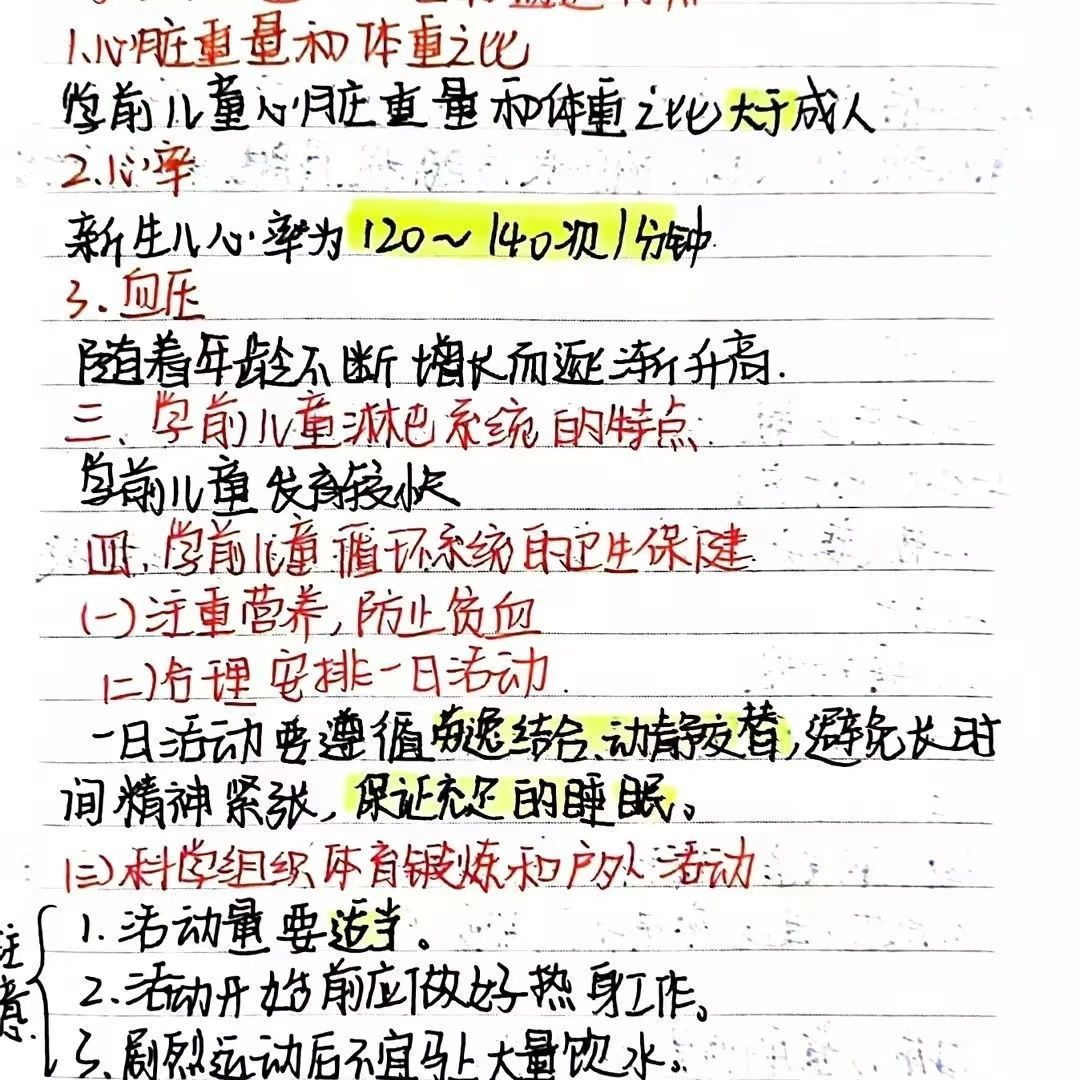 1.心脏重量和体重之比
学前儿童心脏重量和体重之比大于成人
2.心率
新生儿心率为120～140次/分钟.
3.血压
随着年龄不断增长而逐渐升高.
三、学前儿童淋巴系统的特点.
学前儿童发育较快
四、学前儿童循环系统的卫生保健
(一)注重营养,防止贫血
(二)合理安排一日活动.
一日活动要遵循劳逸结合、动静交替,避免长时
间精神紧张,保证充足的睡眠。
(三)科学组织体育锻炼和户外活动.
注意.
1.活动量要适当。
2.活动开始前应做好热身工作。
3.剧烈运动后不宜马上大量饮水。